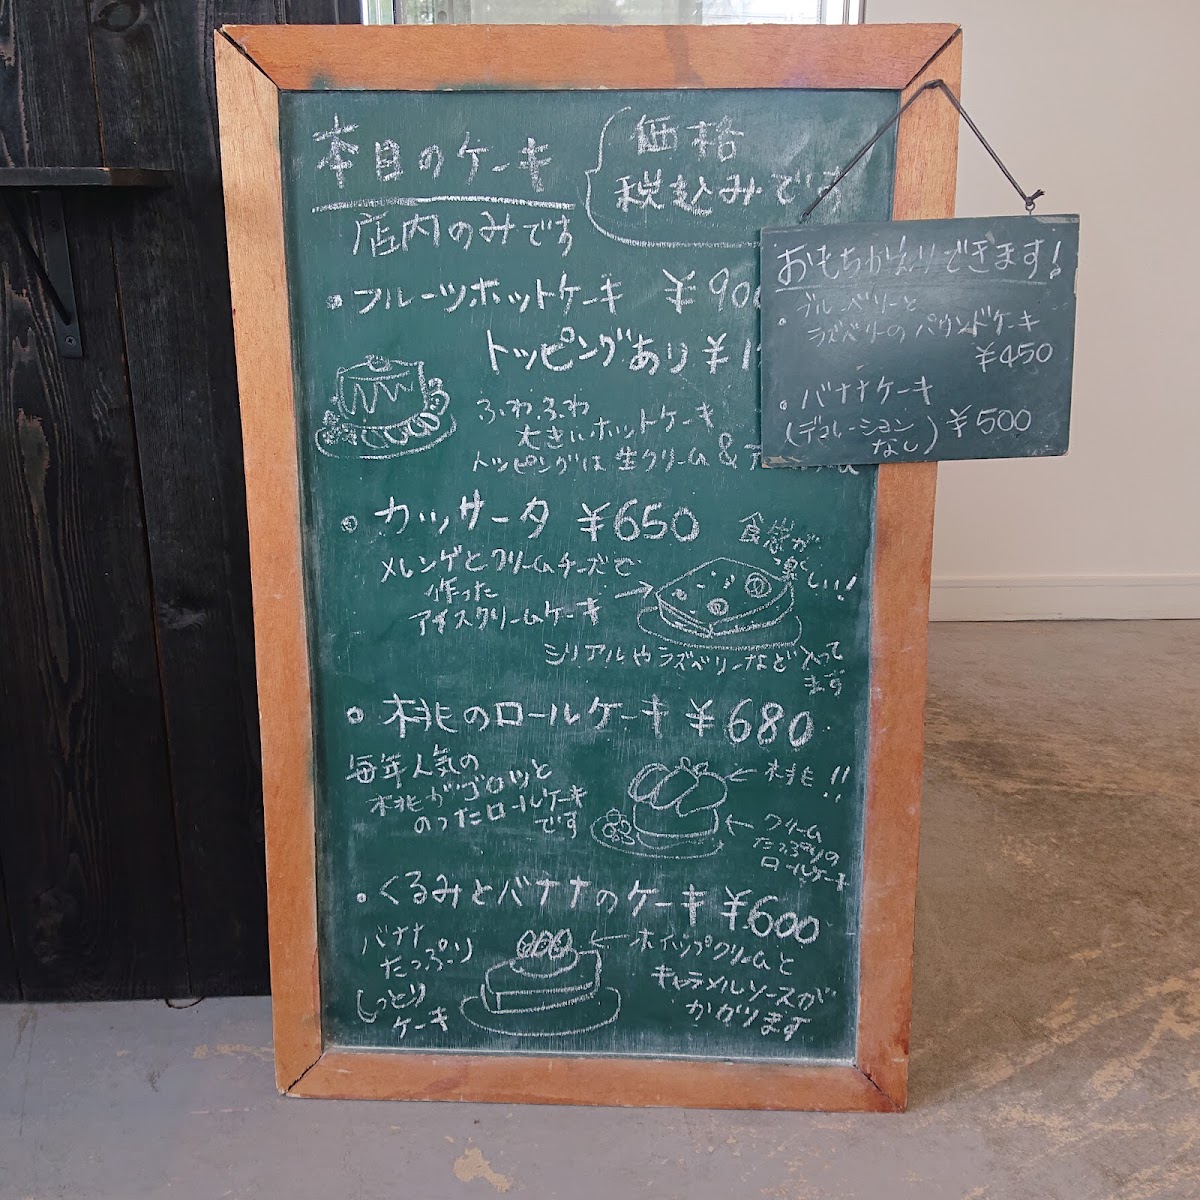 本日のケーキ
価格
税込みです
店内のみです
・フルーツホットケーキ ¥900
トッピングあり ¥1
ふわふわ
大きいホットケーキ
トッピングは生クリーム &
・カッサータ ¥650
メレンゲとクリームチーズで
作った
アイスクリームケーキ
食感が
楽しい!
シリアルやラズベリーなど入って
ます
・桃のロールケーキ ¥680
毎年人気の
桃がゴロッと
のったロールケーキ
です
桃!!
クリーム
たっぷりの
ロールケーキ
・くるみとバナナのケーキ ¥600
バナナ
たっぷり
しっとり
ケーキ
ホイップクリームと
キャラメルソースが
かかります
おもちかえりできます!
・ブルーベリーと
ラズベリーのパウンドケーキ
¥450
・バナナケーキ
(デコレーション
なし) ¥500